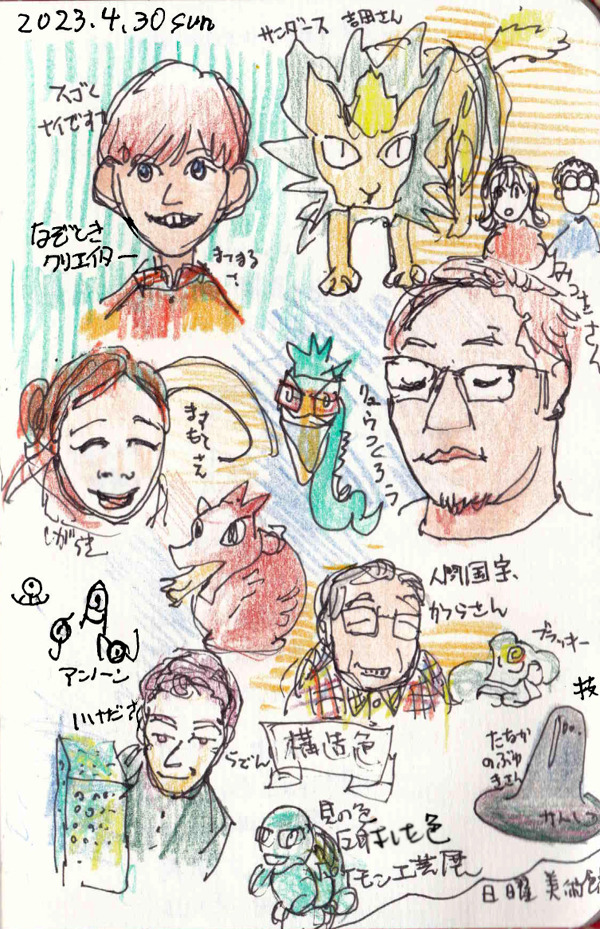 2023.4.30 sun
サンダース 吉田さん
スゴく
ナイです?
なぞとき
クリエイター
まつまる
さ
みつきさん
リュウつくろう
ますもとさん
しがらき
人間国宝、
かつらさん
ブラッキー
アンノーン
いけださ
技
らでん
構造色
たなか
のぶゆ
きさん
かんしつ
貝の色
反射した色
ポケモン工芸展
日曜美術館